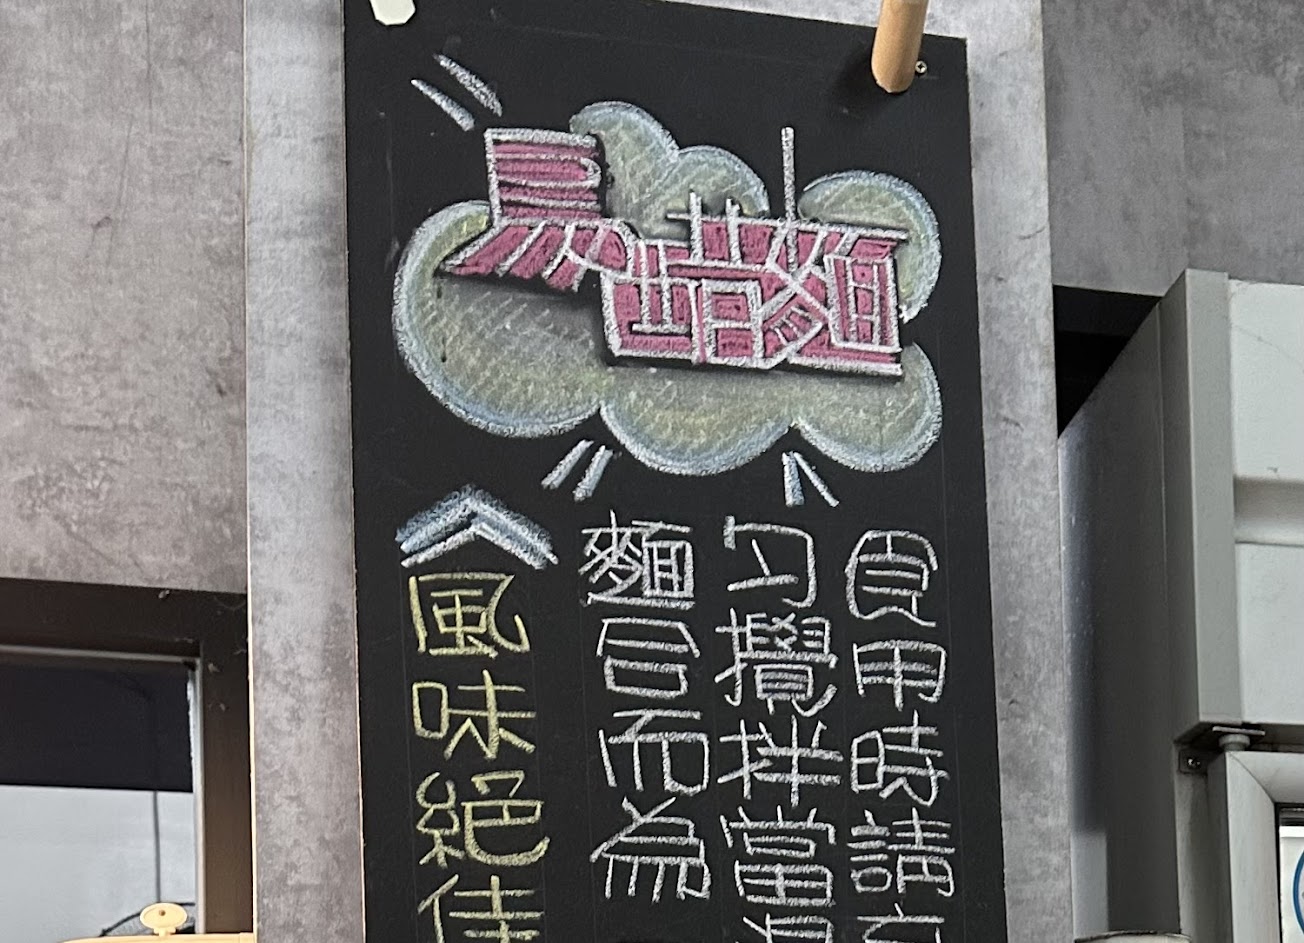 烏醋麵
食用時請
勻攪拌當
麵合而為
風味絕佳